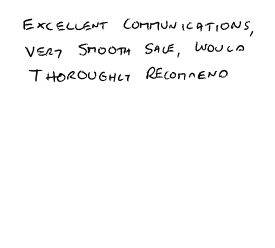 EXCELLENT COMMUNICATIONS,
VERY SMOOTH SALE, WOULD
THOROUGHLY RECOMMEND